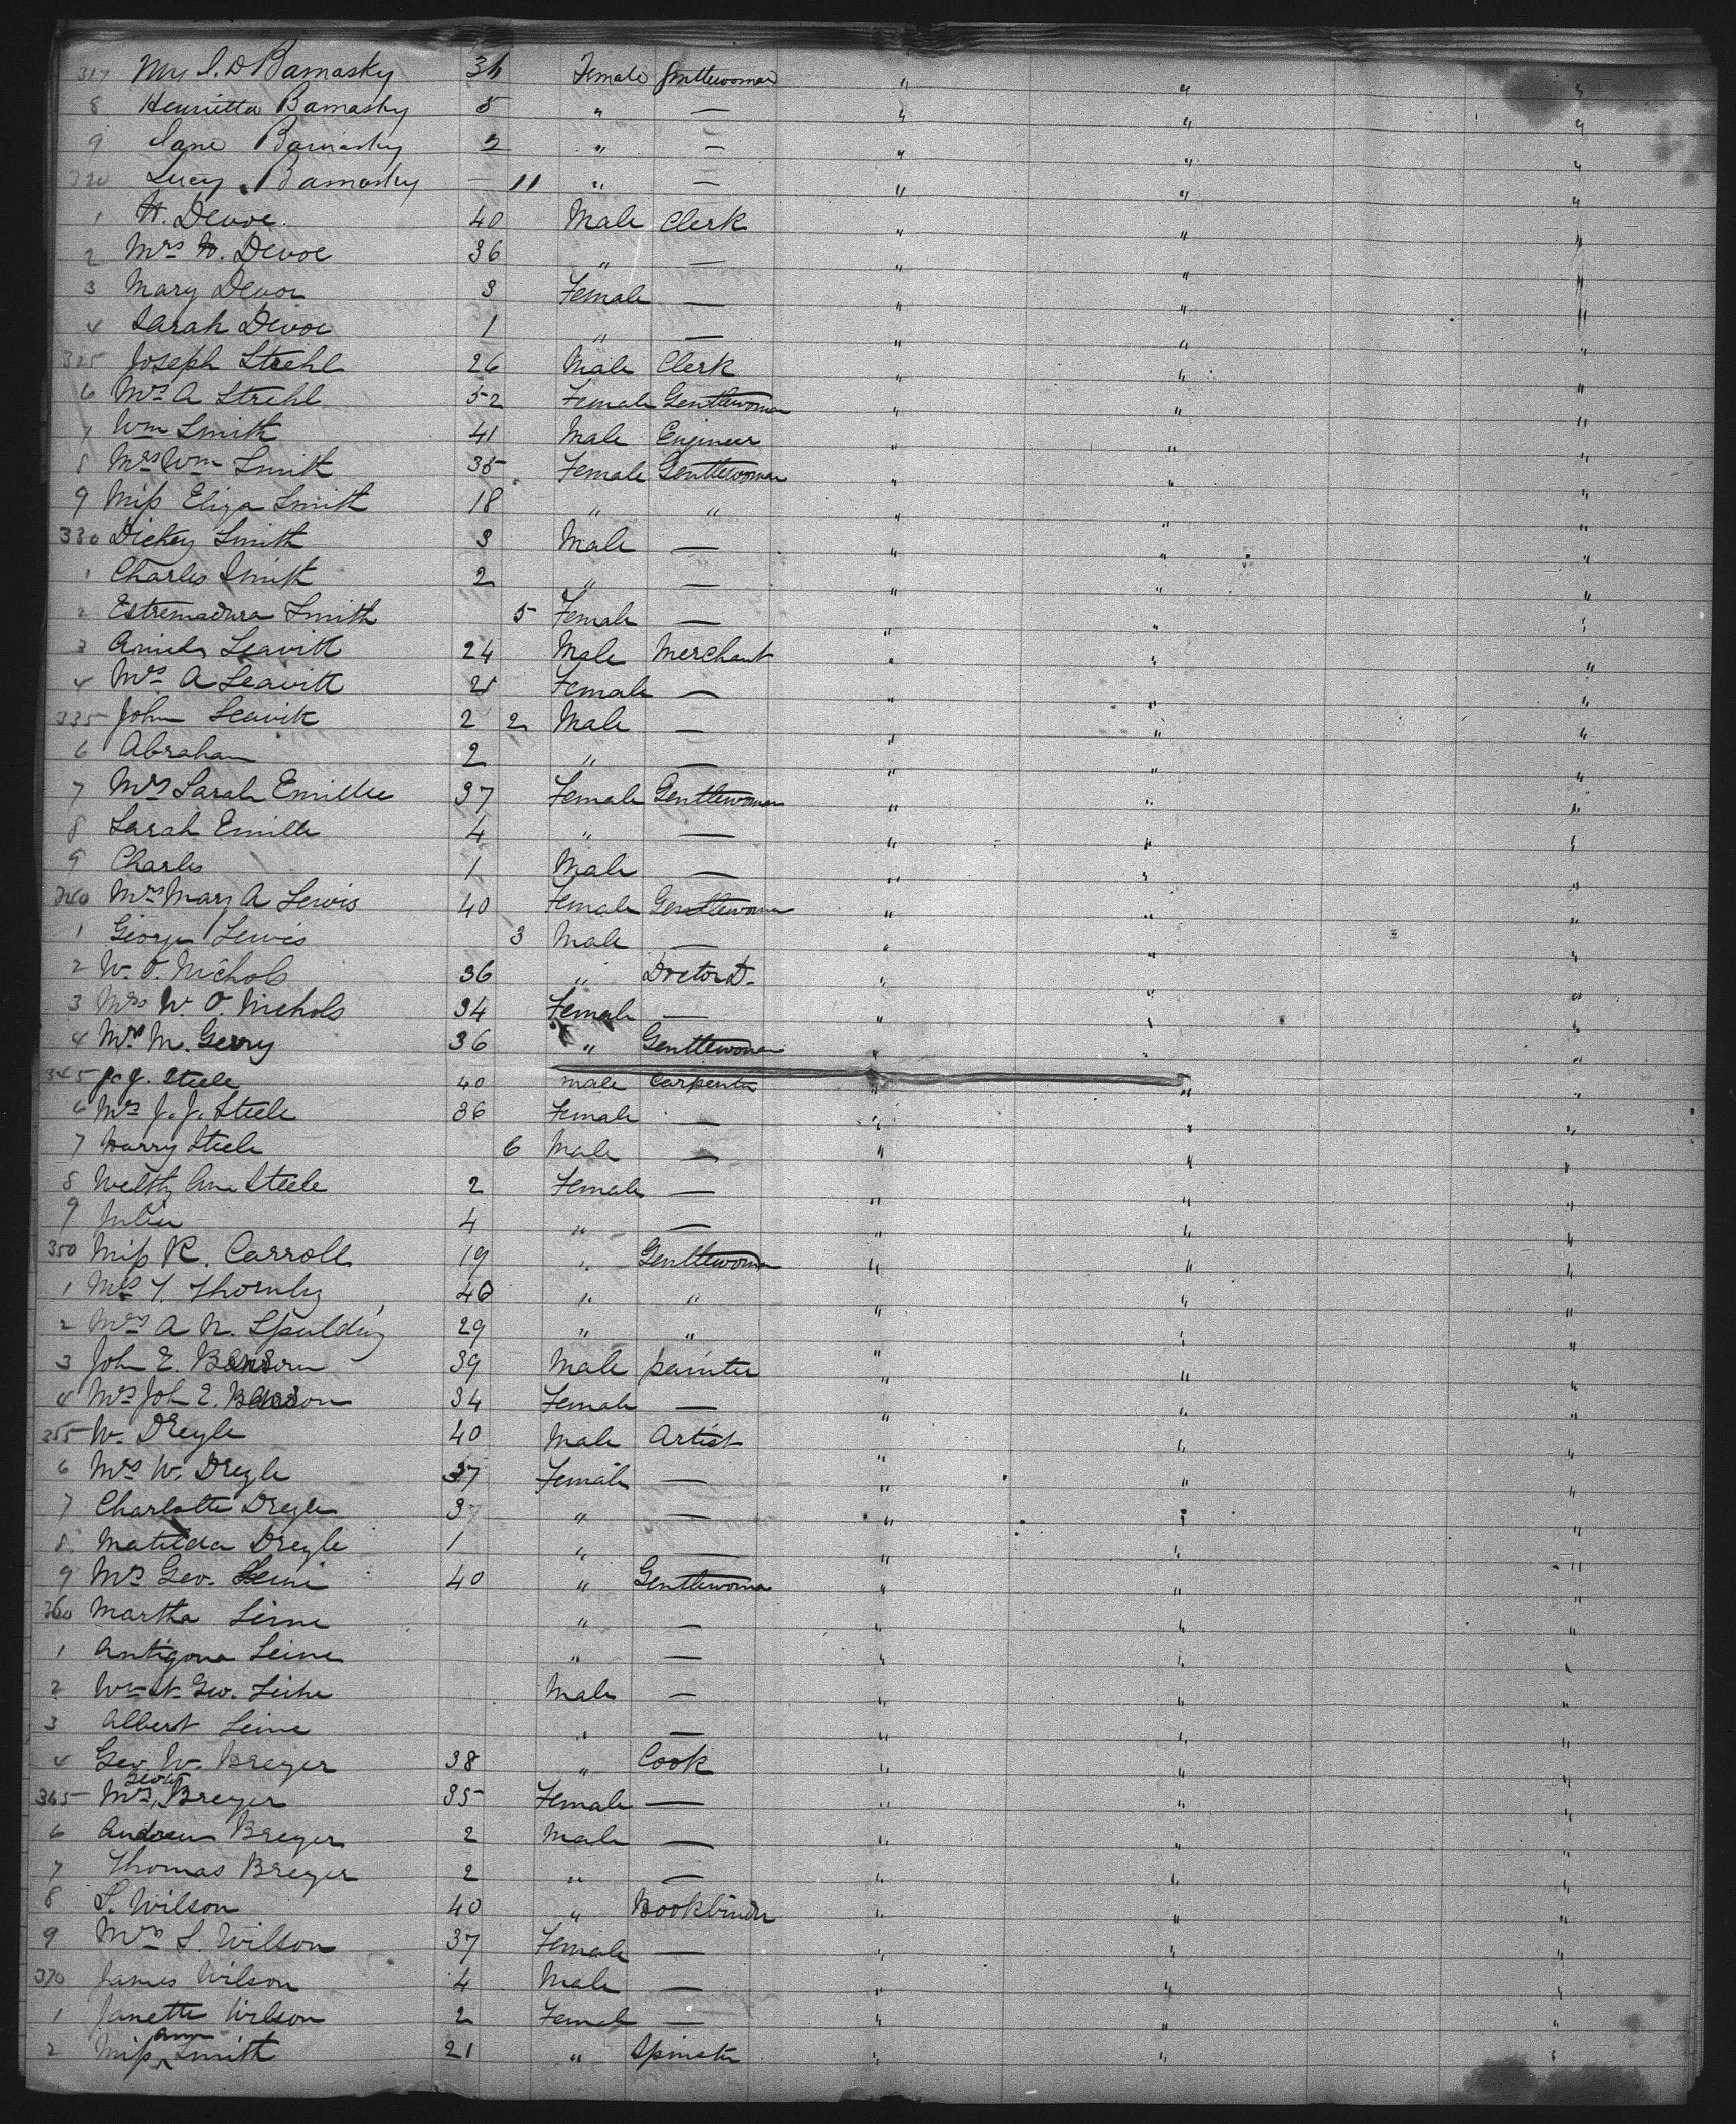 317 Mrs S. D Bamasky 36 Female Gentlewoman " " "
8 Henrietta Bamasky 5 " — " " "
9 Jane Bamasky 2 " — " " "
320 Lucy Bamasky — 11 " — " " "
1 N. Devoe 40 Male Clerk " " "
2 Mrs N. Devoe 36 " — " " "
3 Mary Devoe 3 Female — " " "
4 Sarah Devoe 1 " — " " "
325 Joseph Strehl 26 Male Clerk " " "
6 Mrs A Strehl 52 Female Gentlewoman " " "
7 Wm Smith 41 Male Engineer " " "
8 Mrs Wm Smith 35 Female Gentlewoman " " "
9 Miss Eliza Smith 18 " " " " "
330 Dickey Smith 3 Male — " " "
1 Charles Smith 2 " — " " "
2 Estremadura Smith 5 Female — " " "
3 Leavitt 24 Male Merchant " " "
4 Mrs A Leavitt 21 Female — " " "
335 John Leavitt 2 2 Male — " " "
6 Abraham 2 " — " " "
7 Mrs Sarah Emille 37 Female Gentlewoman " " "
8 Sarah Emille 4 " — " " "
9 Charles 1 Male — " " "
340 Mrs Mary A Lewis 40 Female Gentlewoman " " "
1 George Lewis 3 Male — " " "
2 W. O. Nichols 36 " Doctor D. " " "
3 Mrs W. O. Nichols 34 Female — " " "
4 Mrs M. Gerry 36 " Gentlewoman " " "
345 J. J. Steele 40 male Carpenter " " "
6 Mrs J. J. Steele 36 Female — " " "
7 Harry Steele 6 Male — " " "
8 Welthy Ann Steele 2 Female — " " "
9 Julia 4 " — " " "
350 Miss R. Carroll 19 " Gentlewoman " " "
1 Mrs T. Thornley 40 " " " " "
2 Mrs A N. Spulding 29 " " " " "
3 John E. Benson 39 Male painter " " "
4 Mrs Joh E. Benson 34 Female — " " "
355 W. Dregle 40 Male Artist " " "
6 Mrs W. Dregle 37 Female — " " "
7 Charlotte Dregle 3 " — " " "
8 Matilda Dregle 1 " — " " "
9 Mrs Geo. Leine 40 " Gentlewoma " " "
360 Martha Leine " — " " "
1 Antigona Leine " — " " "
2 Geo. Leine Male — " " "
3 Albert Leine " — " " "
4 Geo W. Breyer 38 " Cook " " "
365 Mrs Geo W Breyer 35 Female — " " "
6 Andrew Breyer 2 Male — " " "
7 Thomas Breyer 2 " — " " "
8 S. Wilson 40 " Bookbinder " " "
9 Mrs S. Wilson 37 Female — " " "
370 James Wilson 4 Male — " " "
1 Janette Wilson 2 Female — " " "
2 Miss Ann Smith 21 " Spinster " " "